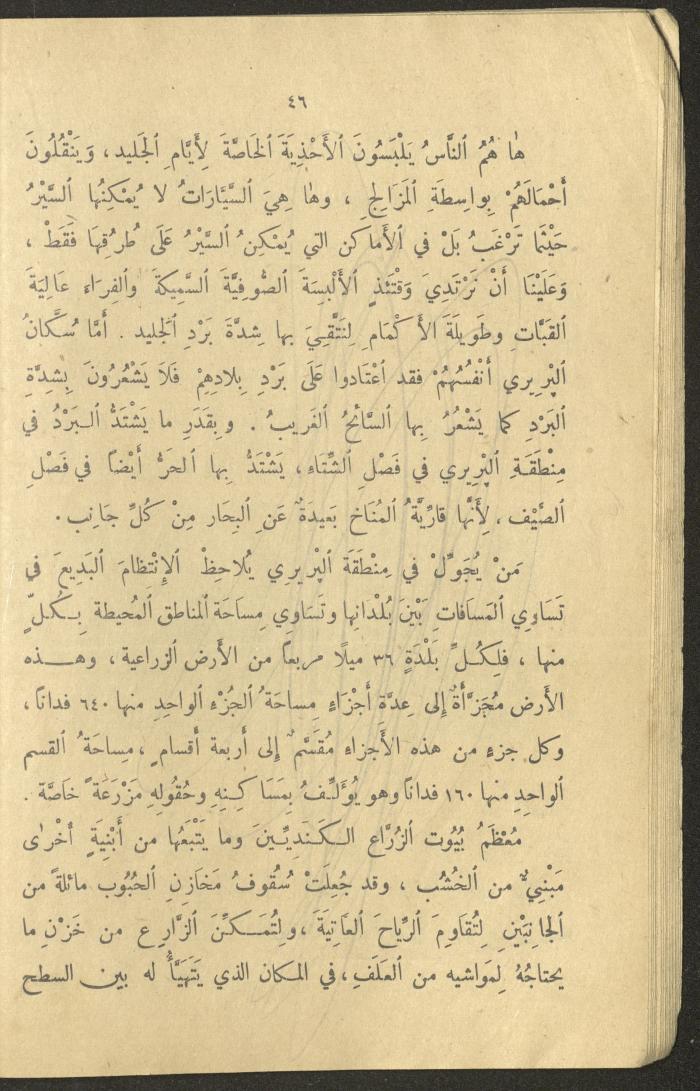 ٤٦
هٰا هُمُ ٱلنَّاسُ يَلْبَسُونَ ٱلأَحْذِيَةَ ٱلخَاصَّةَ لِأَيَّامِ ٱلجَليد ، وَيَنْقُلُونَ
أَحْمَالَهُمْ بِواسِطَةِ ٱلمَزَالِجِ ، وهٰا هِيَ ٱلسَّيَّارَاتُ لا يُمْكِنُهَا ٱلسَّيْرُ
حَيْثَما تَرْغَبُ بَلْ في ٱلأَماكن التي يُمْكِنُ ٱلسَّيْرُ عَلَى طُرُقِهَا فَقَطْ ،
وَعَلَيْنَا أَنْ نَرْتَدِيَ وَقْتَئِذٍ ٱلأَلْبِسَةَ ٱلصُّوفِيَّةَ ٱلسَّمِيكَةَ وٱلفِرَاءَ عَالِيَةَ
ٱلقَبَّاتِ وطَوِيلَةَ ٱلأَكْمَامِ لِنَتَّقِيَ بها شِدَّةَ بَرْدِ ٱلجَليد . أَمَّا سُكَّانُ
ٱلپْرِيري أَنْفُسُهُمْ فقد ٱعْتَادوا عَلَى بَرْدِ بِلادِهِمْ فَلاَ يَشْعُرُونَ بِشدَّةِ
ٱلبَرْدِ كما يَشْعُرُ بِها ٱلسَّائحُ ٱلغَريبُ . وبِقَدَرِ ما يَشْتَدُّ ٱلبَرْدُ في
مِنْطَقَةِ ٱلپْرِيري في فَصْلِ ٱلشِّتَاءِ ، يَشْتَدُّ بِها ٱلحَرُّ أَيْضاً في فَصْلِ
ٱلصَّيْف ، لِأَنَّها قارِّيَّةُ ٱلمُنَاخ بَعيدَةٌ عَنِ ٱلبِحَار مِنْ كُلِّ جَانِب .
مَنْ يُجَوِّلْ في مِنْطَقَة ٱلپْرِيرِي يُلاحِظْ ٱلإِنْتظامَ ٱلبَدِيعَ في
تَسَاوِي ٱلمَسَافَاتِ بَيْنَ بُلْدَانِها وتَسَاوِي مِسَاحَة ٱلمناطق ٱلمُحيطة بِكُلٍّ
منها ، فلِكُلِّ بَلْدَةٍ ٣٦ ميلًا مربعاً من الأَرض ٱلزراعية ، وهذه
الأَرض مُجَزَّأَةٌ إلى عِدَّةِ أَجْزَاءٍ مِساحَةُ ٱلجُزْءِ ٱلواحِدِ منها ٦٤٠ فداناً ،
وكل جزءٍ من هذه الأَجزاءِ مُقَسَّمٌ إلى أَربعة أَقسامٍ ، مِساحَةُ ٱلقسم
ٱلواحِدِ منها ١٦٠ فداناً وهو يُؤَلِّفُ بِمَسَاكِنِهِ وحُقُولِهِ مَزْرَعَةً خاصَّة .
مُعْظَمُ بُيُوت ٱلزُرَّاع ٱلكَنَدِيِّينَ وما يَتْبَعُها من أَبْنِيَةٍ أُخْرٰى
مَبْنِيٌّ من ٱلخُشُب ، وقد جُعِلَتْ سُقُوفُ مَخَازِنِ ٱلحُبُوب مائلةً من
ٱلجانِبَيْنِ لِتُقَاوِمَ ٱلرِّياحَ ٱلعَاتِيَةَ ، ولِتُمَكِّنَ ٱلزَّارِعَ من خَزْنِ ما
يحتاجُهُ لِمَواشيه من ٱلعَلَفِ ، في المكان الذي يَتَهَيَّأُ له بين السطح